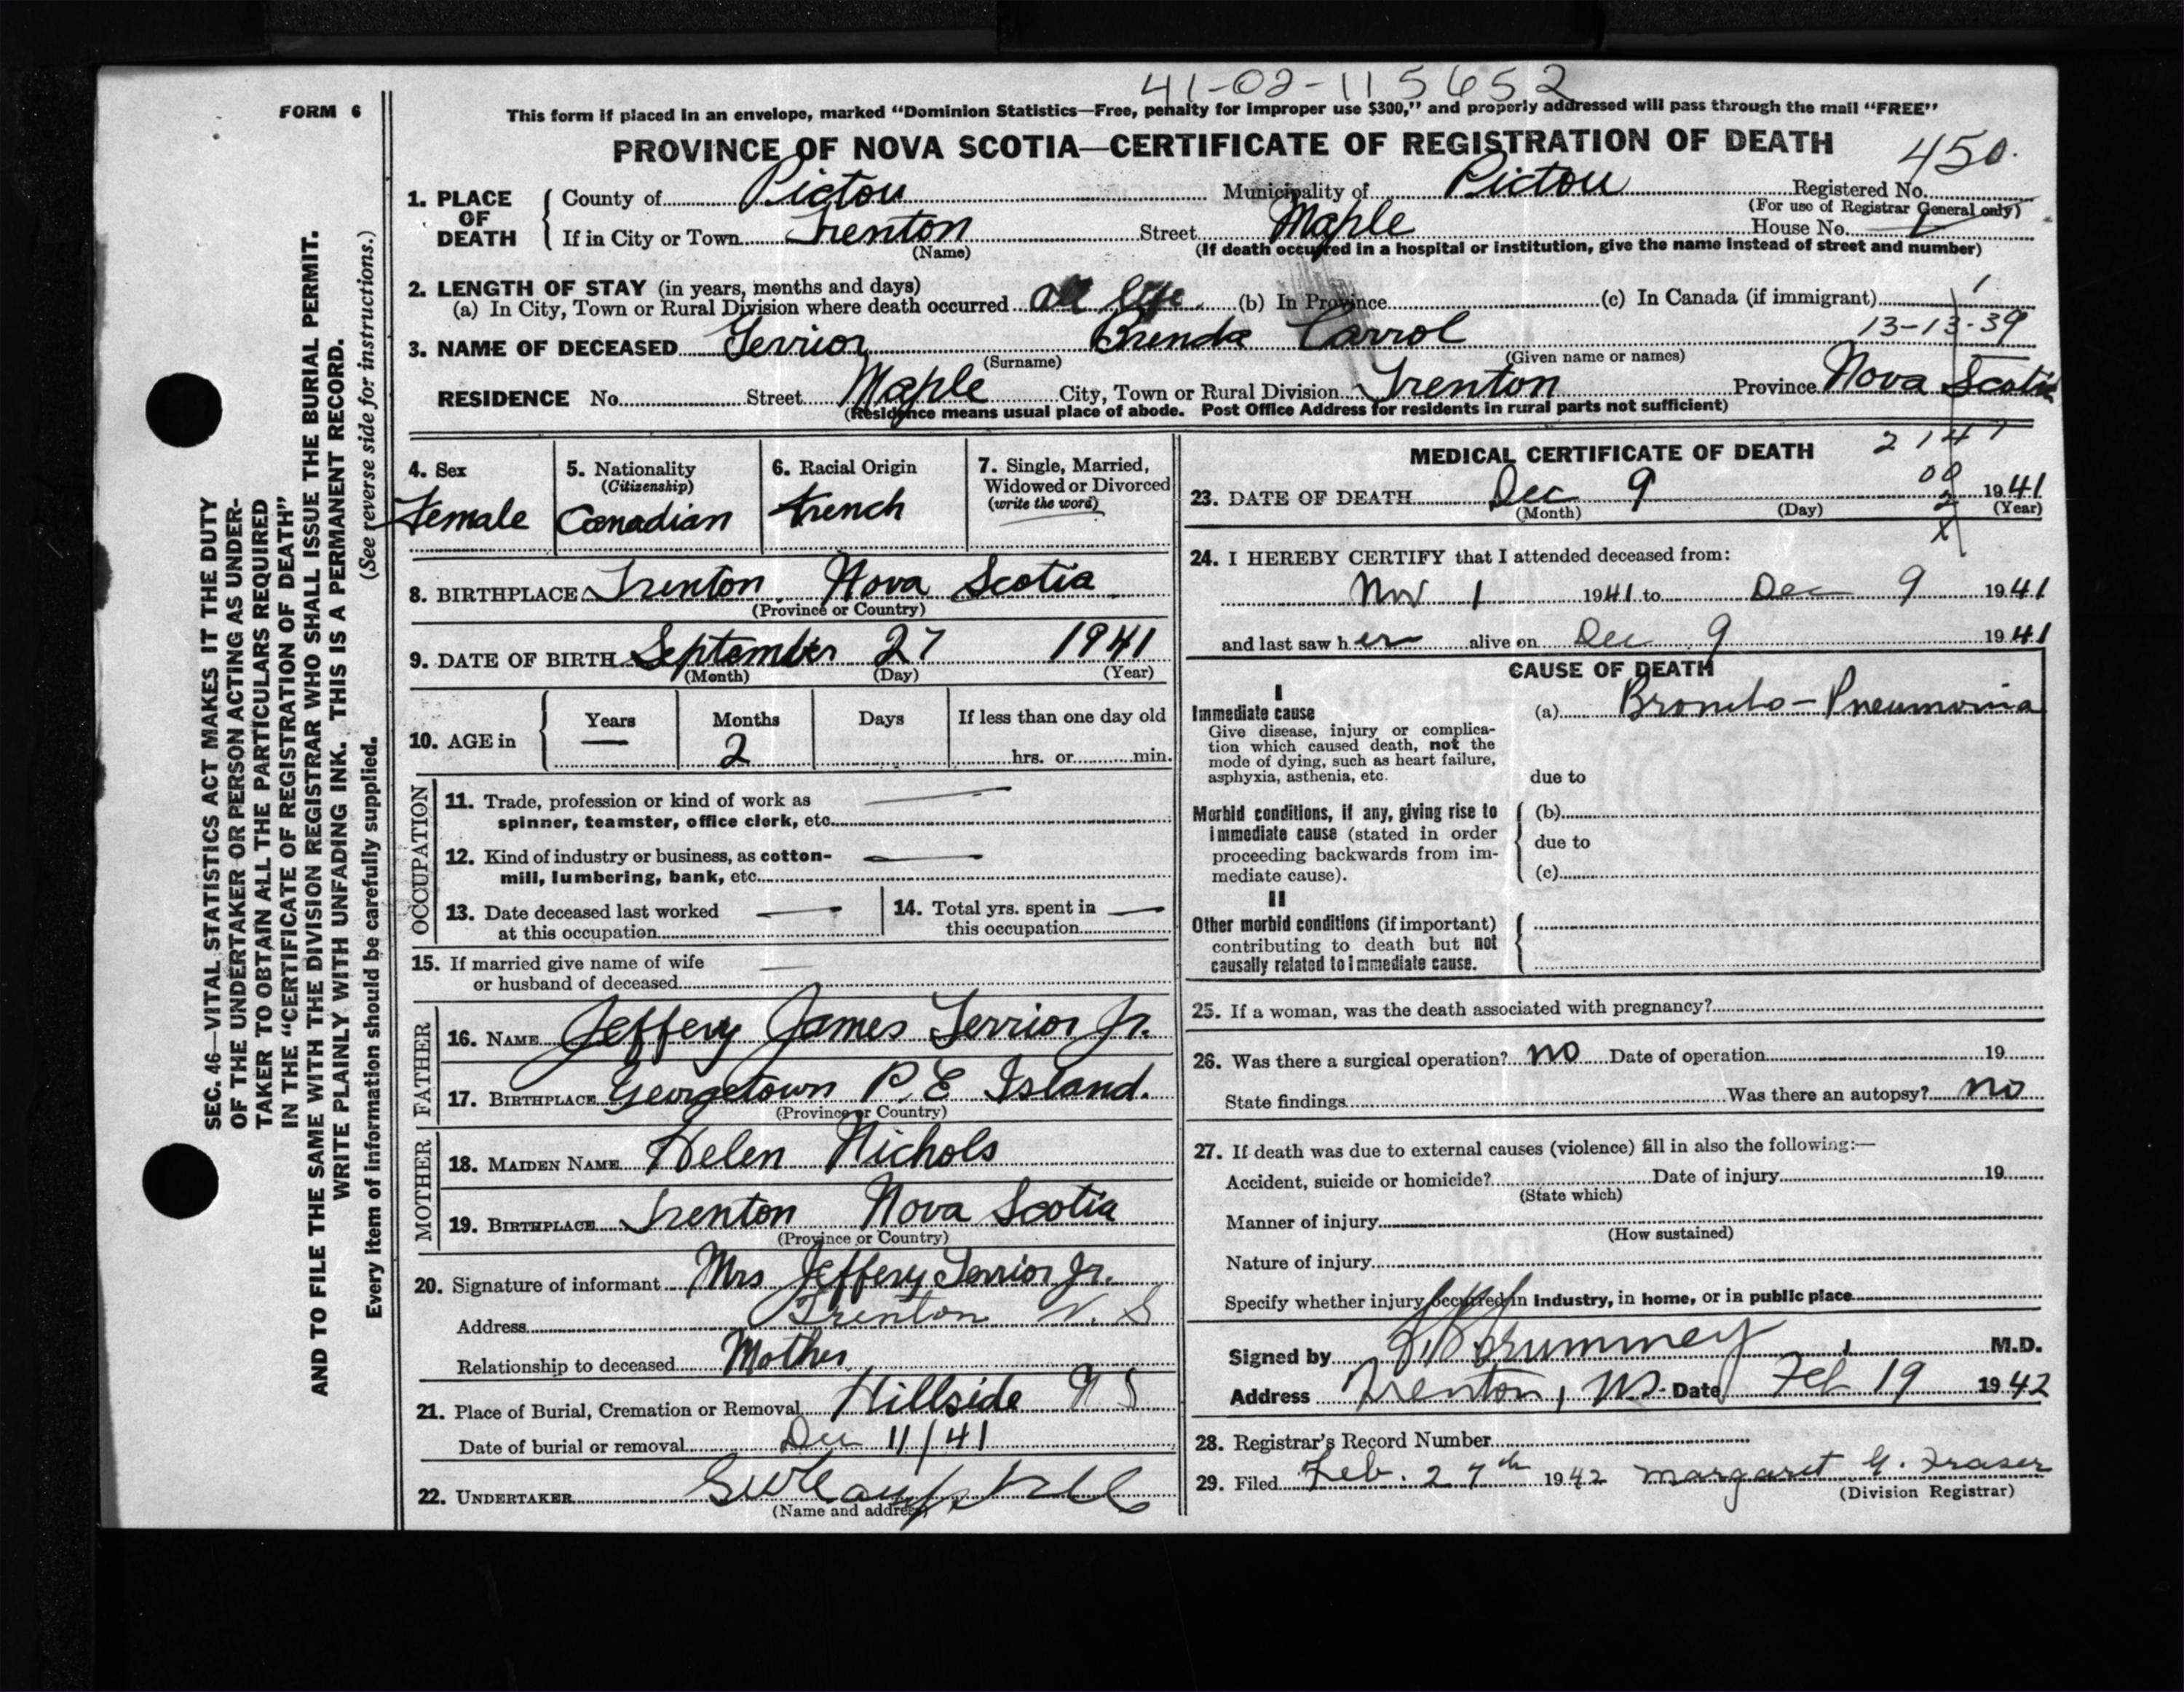 41-02-115652
FORM 6
This form if placed in an envelope, marked "Dominion Statistics—Free, penalty for improper use $300," and properly addressed will pass through the mail "FREE"
PROVINCE OF NOVA SCOTIA—CERTIFICATE OF REGISTRATION OF DEATH
450.
1. PLACE OF DEATH { County of Pictou Municipality of Pictou Registered No.
(For use of Registrar General only)
If in City or Town Trenton Street Maple House No.
(Name) (If death occurred in a hospital or institution, give the name instead of street and number)
2. LENGTH OF STAY (in years, months and days)
(a) In City, Town or Rural Division where death occurred all life (b) In Province (c) In Canada (if immigrant)
13-13-39
3. NAME OF DECEASED Terrior Brenda Carrol
(Surname) (Given name or names)
RESIDENCE No. Street Maple City, Town or Rural Division Trenton Province Nova Scotia
(Residence means usual place of abode. Post Office Address for residents in rural parts not sufficient)
SEC. 46—VITAL STATISTICS ACT MAKES IT THE DUTY
OF THE UNDERTAKER OR PERSON ACTING AS UNDER-
TAKER TO OBTAIN ALL THE PARTICULARS REQUIRED
IN THE "CERTIFICATE OF REGISTRATION OF DEATH"
AND TO FILE THE SAME WITH THE DIVISION REGISTRAR WHO SHALL ISSUE THE BURIAL PERMIT.
WRITE PLAINLY WITH UNFADING INK. THIS IS A PERMANENT RECORD.
Every item of information should be carefully supplied. (See reverse side for instructions.)
4. Sex
Female
5. Nationality
(Citizenship)
Canadian
6. Racial Origin
French
7. Single, Married,
Widowed or Divorced
(write the word)
8. BIRTHPLACE Trenton Nova Scotia
(Province or Country)
9. DATE OF BIRTH September 27 1941
(Month) (Day) (Year)
10. AGE in { Years Months Days If less than one day old
— 2 hrs. or min.
OCCUPATION
11. Trade, profession or kind of work as
spinner, teamster, office clerk, etc.
12. Kind of industry or business, as cotton-
mill, lumbering, bank, etc.
13. Date deceased last worked
at this occupation
14. Total yrs. spent in
this occupation
15. If married give name of wife
or husband of deceased
FATHER
16. NAME Jeffery James Terrior Jr.
17. BIRTHPLACE Georgetown P.E Island.
(Province or Country)
MOTHER
18. MAIDEN NAME Helen Nichols
19. BIRTHPLACE Trenton Nova Scotia
(Province or Country)
20. Signature of informant Mrs Jeffery Terrior Jr.
Address Trenton N.S
Relationship to deceased Mother
21. Place of Burial, Cremation or Removal Hillside N S
Date of burial or removal Dec 11/41
22. UNDERTAKER
(Name and address)
MEDICAL CERTIFICATE OF DEATH
23. DATE OF DEATH Dec 9 1941
(Month) (Day) (Year)
24. I HEREBY CERTIFY that I attended deceased from:
Nov 1 1941 to Dec 9 1941
and last saw her alive on Dec 9 1941
CAUSE OF DEATH
I
Immediate cause
Give disease, injury or complica-
tion which caused death, not the
mode of dying, such as heart failure,
asphyxia, asthenia, etc.
(a) Broncho-Pneumonia
due to
Morbid conditions, if any, giving rise to
immediate cause (stated in order
proceeding backwards from im-
mediate cause).
(b)
due to
(c)
II
Other morbid conditions (if important)
contributing to death but not
causally related to immediate cause.
25. If a woman, was the death associated with pregnancy?
26. Was there a surgical operation? no Date of operation 19
State findings Was there an autopsy? no
27. If death was due to external causes (violence) fill in also the following:—
Accident, suicide or homicide? Date of injury 19
(State which)
Manner of injury
(How sustained)
Nature of injury
Specify whether injury occurred in industry, in home, or in public place
Signed by M.D.
Address Trenton, NS. Date Feb 19 1942
28. Registrar's Record Number
29. Filed Feb. 27th 1942 Margaret G. Fraser
(Division Registrar)